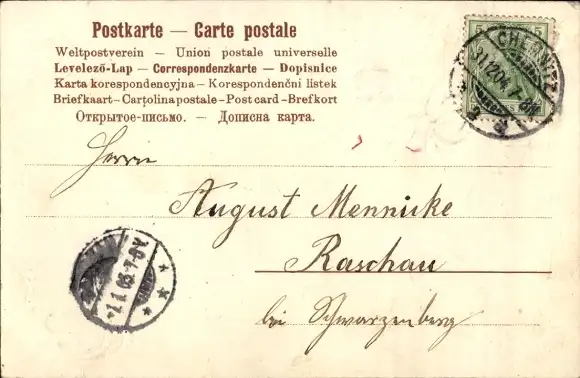 Postkarte — Carte postale
Weltpostverein — Union postale universelle
Levelező-Lap — Correspondenzkarte — Dopisnice
Karta korespondencyjna — Korespondenční listek
Briefkaart — Cartolina postale - Post card - Brefkort
Открытое-письмо. — Дописна карта.
5 5
CHEMNITZ
31.12.04.
Herrn
August Mennicke
Raschau
bei Schwarzenberg
1.1.05.